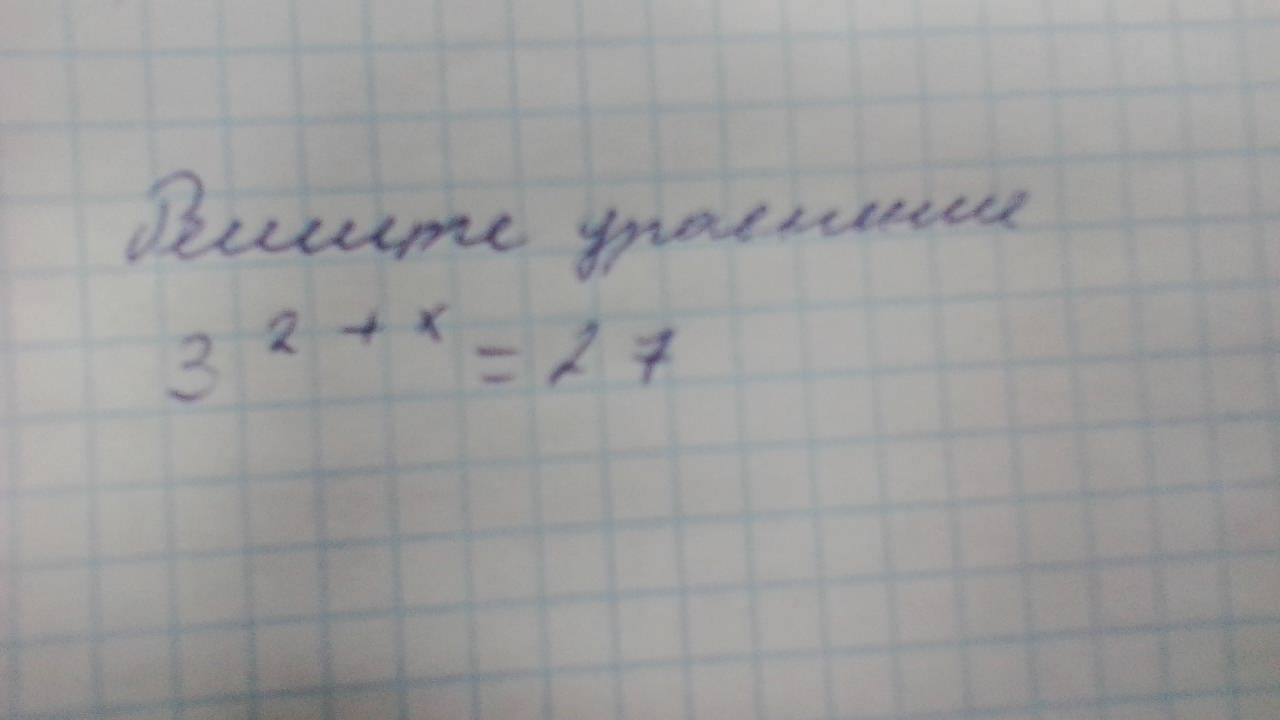 Решите уравнение
3^{2 + x} = 27